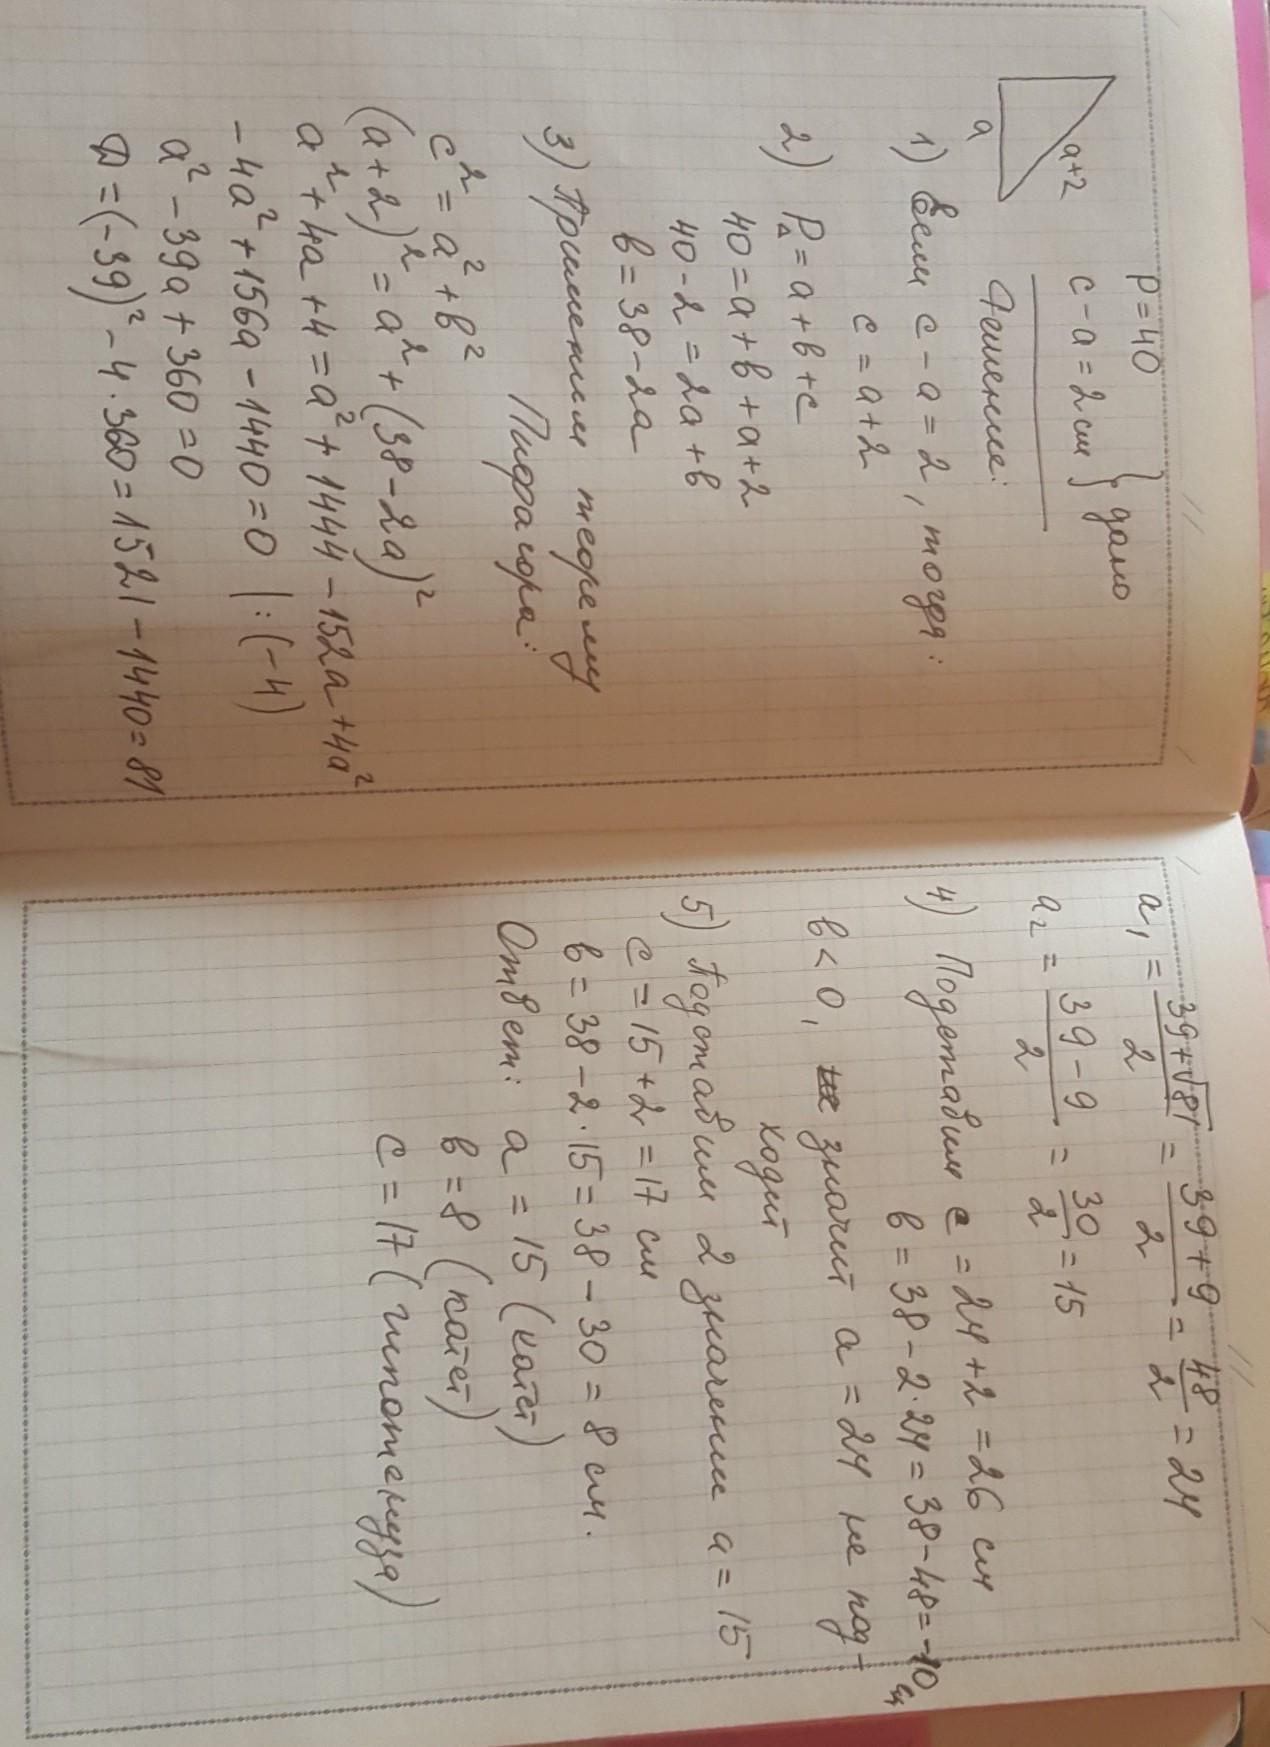 P=40
c-a=2см } дано
a+2
a
Решение:
1) Если c-a=2, тогда:
c=a+2
2) P△=a+b+c
40=a+b+a+2
40-2=2a+b
b=38-2a
3) Применим теорему
Пифагора:
c²=a²+b²
(a+2)²=a²+(38-2a)²
a²+4a+4=a²+1444-152a+4a²
-4a²+156a-1440=0 |:(-4)
a²-39a+360=0
D=(-39)²-4·360=1521-1440=81
a₁=(39+√81)/2=(39+9)/2=48/2=24
a₂=(39-9)/2=30/2=15
4) Подставим c=24+2=26 см
b=38-2·24=38-48=-10 см
b<0, значит a=24 не под-
ходит
5) Подставим 2 значении a=15
c=15+2=17 см
b=38-2·15=38-30=8 см.
Ответ: a=15 (катет)
b=8 (катет)
c=17 (гипотенуза)